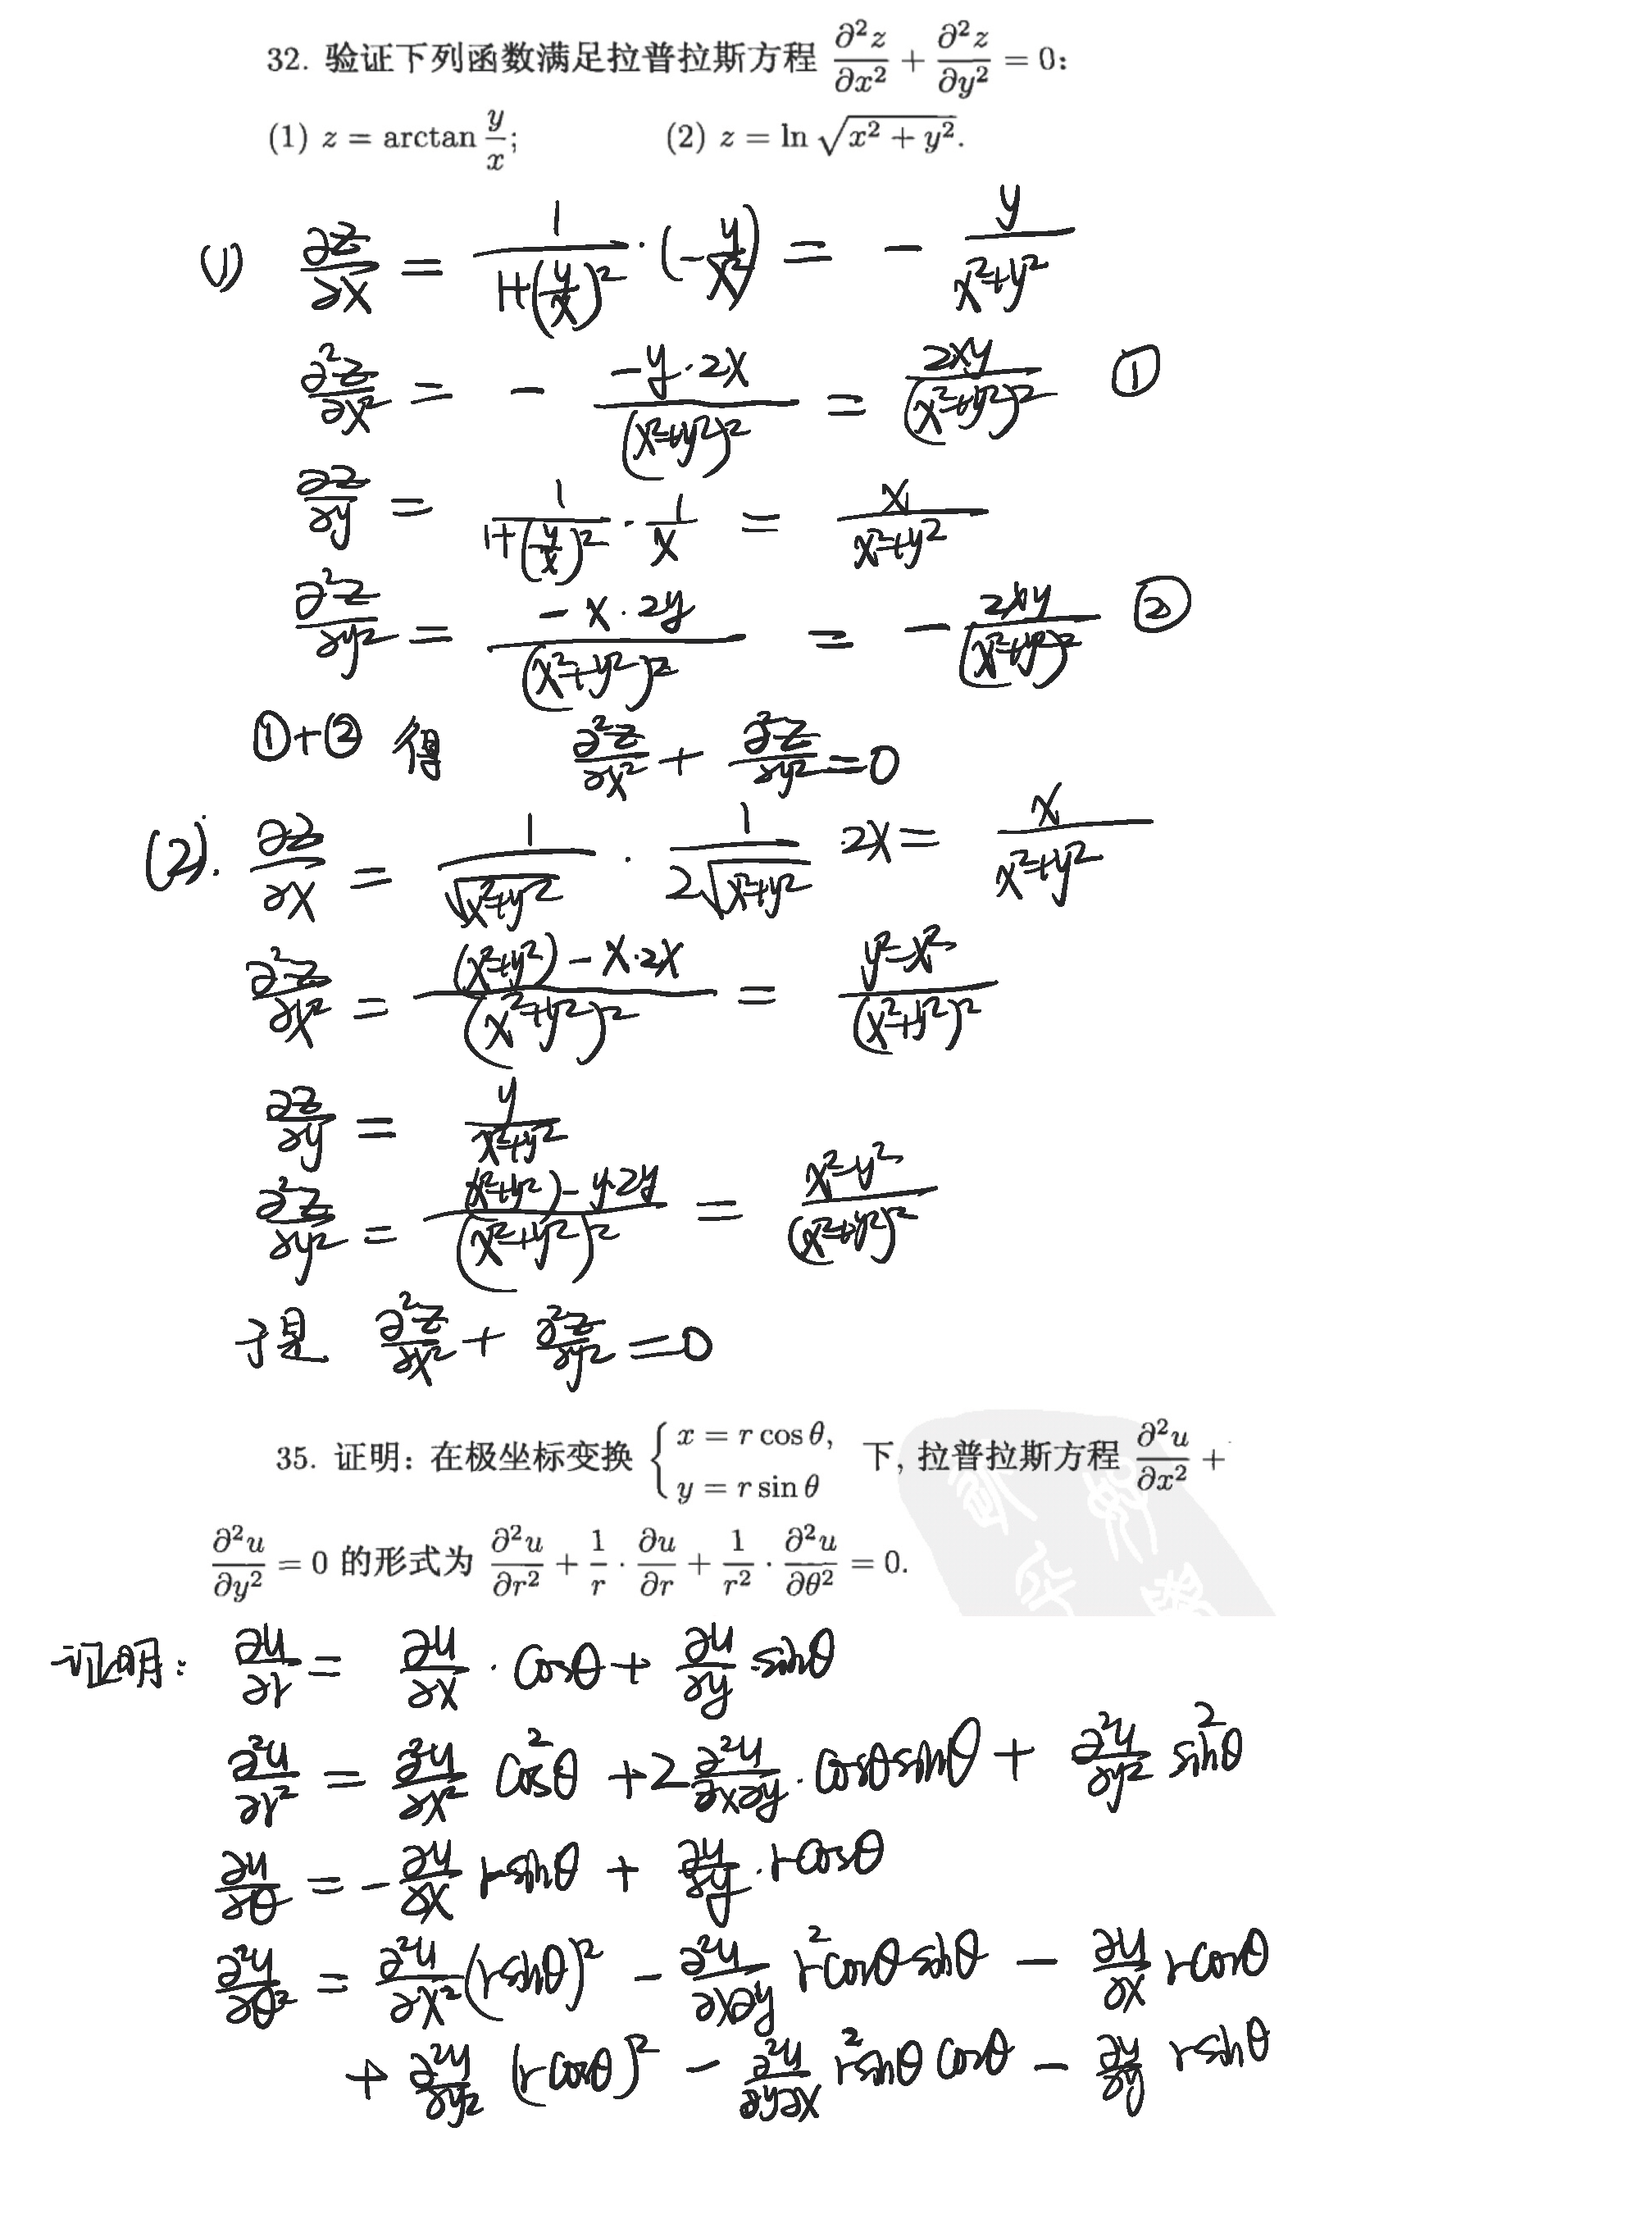 32. 验证下列函数满足拉普拉斯方程 ∂²z/∂x² + ∂²z/∂y² = 0:
(1) z = arctan y/x; (2) z = ln √(x² + y²).
(1) ∂z/∂x = 1/(1+(y/x)²) · (-y/x²) = - y/(x²+y²)
∂²z/∂x² = - (-y·2x)/(x²+y²)² = 2xy/(x²+y²)² ①
∂z/∂y = 1/(1+(y/x)²) · 1/x = x/(x²+y²)
∂²z/∂y² = (-x·2y)/(x²+y²)² = - 2xy/(x²+y²)² ②
①+② 得 ∂²z/∂x² + ∂²z/∂y² = 0
(2). ∂z/∂x = 1/√(x²+y²) · 1/(2√(x²+y²)) ·2x = x/(x²+y²)
∂²z/∂x² = ((x²+y²) - x·2x)/(x²+y²)² = (y²-x²)/(x²+y²)²
∂z/∂y = y/(x²+y²)
∂²z/∂y² = ((x²+y²) - y·2y)/(x²+y²)² = (x²-y²)/(x²+y²)²
于是 ∂²z/∂x² + ∂²z/∂y² = 0
35. 证明: 在极坐标变换 { x = r cos θ, y = r sin θ 下, 拉普拉斯方程 ∂²u/∂x² +
∂²u/∂y² = 0 的形式为 ∂²u/∂r² + 1/r · ∂u/∂r + 1/r² · ∂²u/∂θ² = 0.
证明: ∂u/∂r = ∂u/∂x · cosθ + ∂u/∂y sinθ
∂²u/∂r² = ∂²u/∂x² cos²θ + 2 ∂²u/∂x∂y · cosθsinθ + ∂²u/∂y² sin²θ
∂u/∂θ = - ∂u/∂x rsinθ + ∂u/∂y · rcosθ
∂²u/∂θ² = ∂²u/∂x² (rsinθ)² - ∂²u/∂x∂y r²cosθsinθ - ∂u/∂x rcosθ
+ ∂²u/∂y² (rcosθ)² - ∂²u/∂y∂x r²sinθcosθ - ∂u/∂y rsinθ